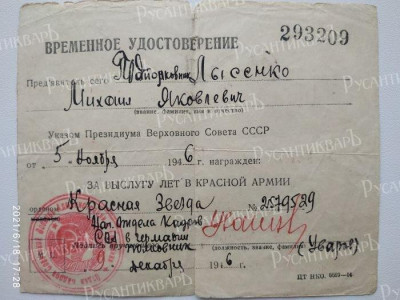 293209
ВРЕМЕННОЕ УДОСТОВЕРЕНИЕ
Пред'явитель сего Подполковник Лысенко
Михаил Яковлевич
(звание, фамилия, имя и отчество)
Указом Президиума Верховного Совета СССР
от 5 ноября 1946 г. награжден:
ЗА ВЫСЛУГУ ЛЕТ В КРАСНОЙ АРМИИ
орденом Красная Звезда № 2579529
Нач. Отдела Кадров
в Германии
полковник (Уваров)
(должность, звание, фамилия)
декабря 1946 г.
РусАнтикварЪ
2021/6/16 17:28